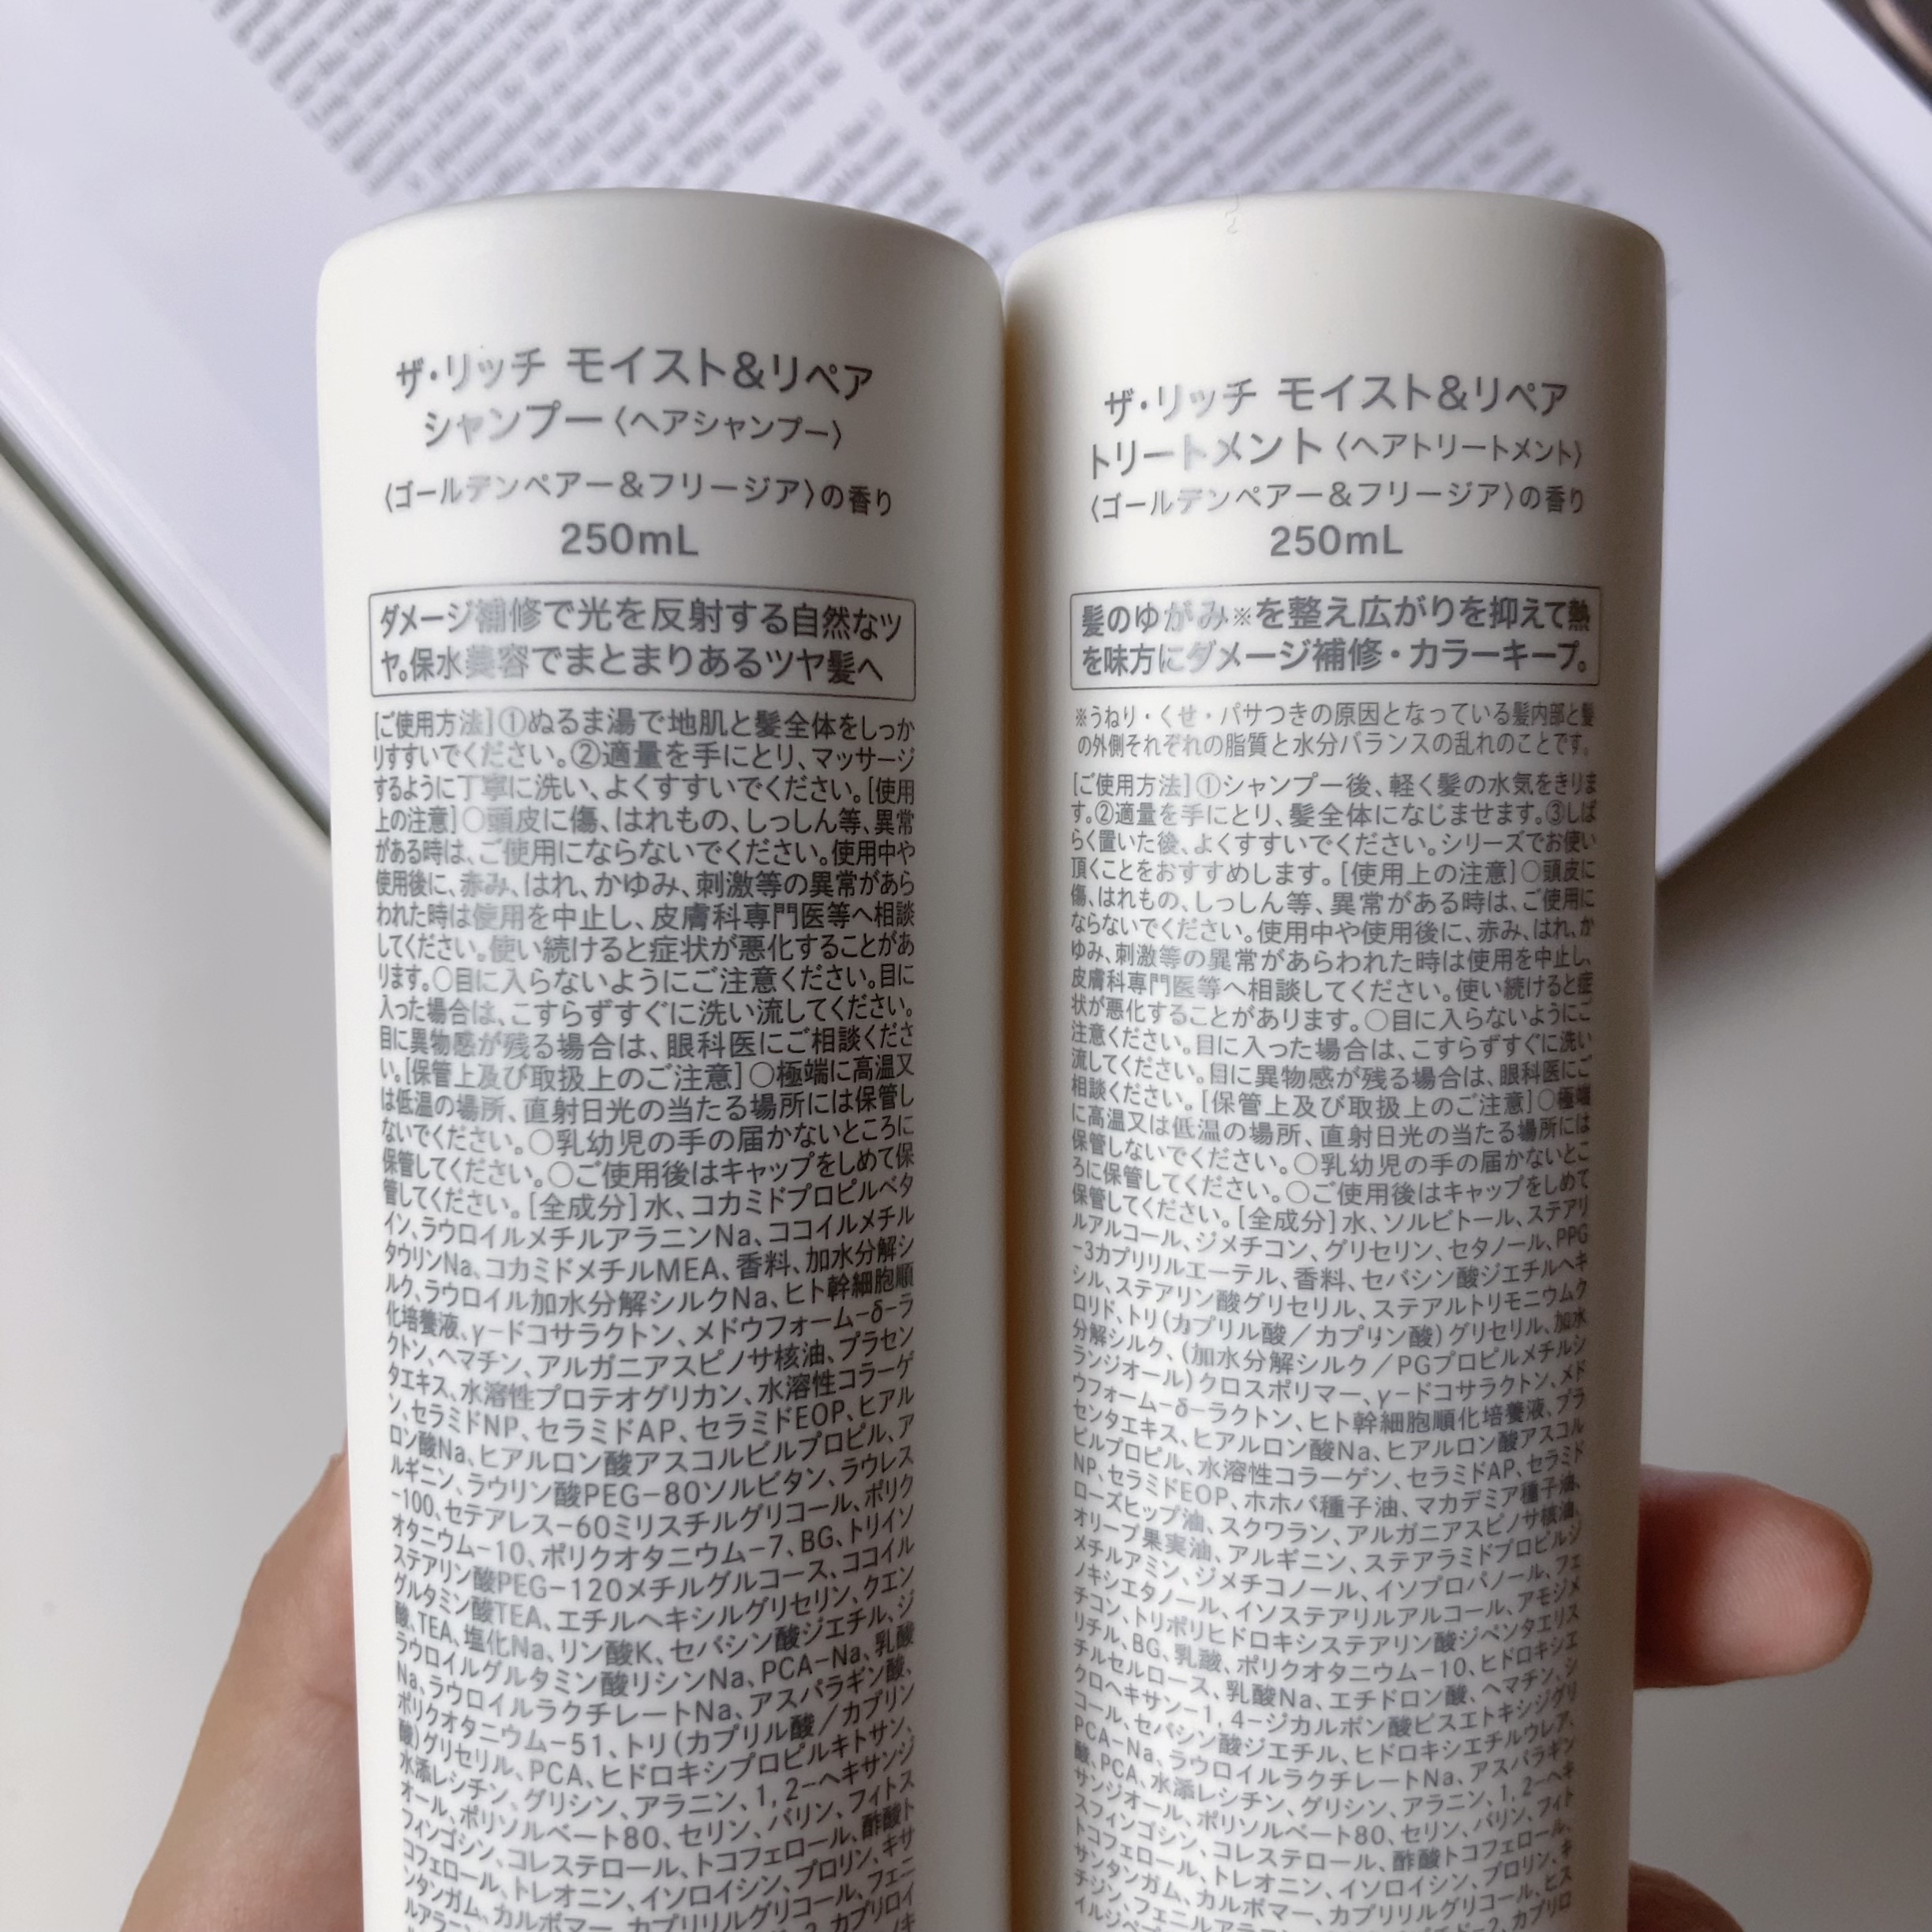 ザ・リッチ モイスト&リペア
シャンプー〈ヘアシャンプー〉
〈ゴールデンペアー&フリージア〉の香り
250mL
ダメージ補修で光を反射する自然なツ
ヤ。保水美容でまとまりあるツヤ髪へ
[ご使用方法]①ぬるま湯で地肌と髪全体をしっか
りすすいでください。②適量を手にとり、マッサージ
するように丁寧に洗い、よくすすいでください。[使用
上の注意]○頭皮に傷、はれもの、しっしん等、異常
がある時は、ご使用にならないでください。使用中や
使用後に、赤み、はれ、かゆみ、刺激等の異常があら
われた時は使用を中止し、皮膚科専門医等へ相談
してください。使い続けると症状が悪化することがあ
ります。○目に入らないようにご注意ください。目に
入った場合は、こすらずすぐに洗い流してください。
目に異物感が残る場合は、眼科医にご相談くださ
い。[保管上及び取扱上のご注意]○極端に高温又
は低温の場所、直射日光の当たる場所には保管し
ないでください。○乳幼児の手の届かないところに
保管してください。○ご使用後はキャップをしめて保
管してください。[全成分]水、コカミドプロピルベタ
イン、ラウロイルメチルアラニンNa、ココイルメチル
タウリンNa、コカミドメチルMEA、香料、加水分解シ
ルク、ラウロイル加水分解シルクNa、ヒト幹細胞順
化培養液、γ-ドコサラクトン、メドウフォーム-δ-ラ
クトン、ヘマチン、アルガニアスピノサ核油、プラセン
タエキス、水溶性プロテオグリカン、水溶性コラーゲ
ン、セラミドNP、セラミドAP、セラミドEOP、ヒアル
ロン酸Na、ヒアルロン酸アスコルビルプロピル、ア
ルギニン、ラウリン酸PEG-80ソルビタン、ラウレス
-100、セテアレス-60ミリスチルグリコール、ポリク
オタニウム-10、ポリクオタニウム-7、BG、トリイソ
ステアリン酸PEG-120メチルグルコース、ココイル
グルタミン酸TEA、エチルヘキシルグリセリン、クエン
酸、TEA、塩化Na、リン酸K、セバシン酸ジエチル、ジ
ラウロイルグルタミン酸リシンNa、PCA-Na、乳酸
Na、ラウロイルラクチレートNa、アスパラギン酸、
ポリクオタニウム-51、トリ(カプリル酸/カプリン
酸)グリセリル、PCA、ヒドロキシプロピルキトサン、
水添レシチン、グリシン、アラニン、1,2-ヘキサンジ
オール、ポリソルベート80、セリン、バリン、フィトス
フィンゴシン、コレステロール、トコフェロール、酢酸ト
コフェロール、トレオニン、イソロイシン、プロリン、キサ
ンタンガム、カルボマー、カプリリルグリコール、フェニ
ザ・リッチ モイスト&リペア
トリートメント〈ヘアトリートメント〉
〈ゴールデンペアー&フリージア〉の香り
250mL
髪のゆがみ※を整え広がりを抑えて熱
を味方にダメージ補修・カラーキープ。
※うねり・くせ・パサつきの原因となっている髪内部と髪
の外側それぞれの脂質と水分バランスの乱れのことです。
[ご使用方法]①シャンプー後、軽く髪の水気をきりま
す。②適量を手にとり、髪全体になじませます。③しば
らく置いた後、よくすすいでください。シリーズでお使い
頂くことをおすすめします。[使用上の注意]○頭皮に
傷、はれもの、しっしん等、異常がある時は、ご使用に
ならないでください。使用中や使用後に、赤み、はれ、か
ゆみ、刺激等の異常があらわれた時は使用を中止し、
皮膚科専門医等へ相談してください。使い続けると症
状が悪化することがあります。○目に入らないようにご
注意ください。目に入った場合は、こすらずすぐに洗い
流してください。目に異物感が残る場合は、眼科医にご
相談ください。[保管上及び取扱上のご注意]○極端
に高温又は低温の場所、直射日光の当たる場所には
保管しないでください。○乳幼児の手の届かないとこ
ろに保管してください。○ご使用後はキャップをしめて
保管してください。[全成分]水、ソルビトール、ステアリ
ルアルコール、ジメチコン、グリセリン、セタノール、PPG
-3カプリリルエーテル、香料、セバシン酸ジエチルヘキ
シル、ステアリン酸グリセリル、ステアルトリモニウムク
ロリド、トリ(カプリル酸/カプリン酸)グリセリル、加水
分解シルク、(加水分解シルク/PGプロピルメチルシ
ランジオール)クロスポリマー、γ-ドコサラクトン、メド
ウフォーム-δ-ラクトン、ヒト幹細胞順化培養液、プラ
センタエキス、ヒアルロン酸Na、ヒアルロン酸アスコル
ビルプロピル、水溶性コラーゲン、セラミドAP、セラミド
NP、セラミドEOP、ホホバ種子油、マカデミア種子油、
ローズヒップ油、スクワラン、アルガニアスピノサ核油、
オリーブ果実油、アルギニン、ステアラミドプロピルジ
メチルアミン、ジメチコノール、イソプロパノール、フェ
ノキシエタノール、イソステアリルアルコール、アモジメ
チコン、トリポリヒドロキシステアリン酸ジペンタエリス
リチル、BG、乳酸、ポリクオタニウム-10、ヒドロキシエ
チルセルロース、乳酸Na、エチドロン酸、ヘマチン、シ
クロヘキサン-1,4-ジカルボン酸ビスエトキシジグリ
コール、セバシン酸ジエチル、ヒドロキシエチルウレア、
PCA-Na、ラウロイルラクチレートNa、アスパラギン
酸、PCA、水添レシチン、グリシン、アラニン、1,2-ヘキ
サンジオール、ポリソルベート80、セリン、バリン、フィト
スフィンゴシン、コレステロール、酢酸トコフェロール、
トコフェロール、トレオニン、イソロイシン、プロリン、キ
サンタンガム、カルボマー、カプリリルグリコール、ヒス
チジン、フェニルアラニン